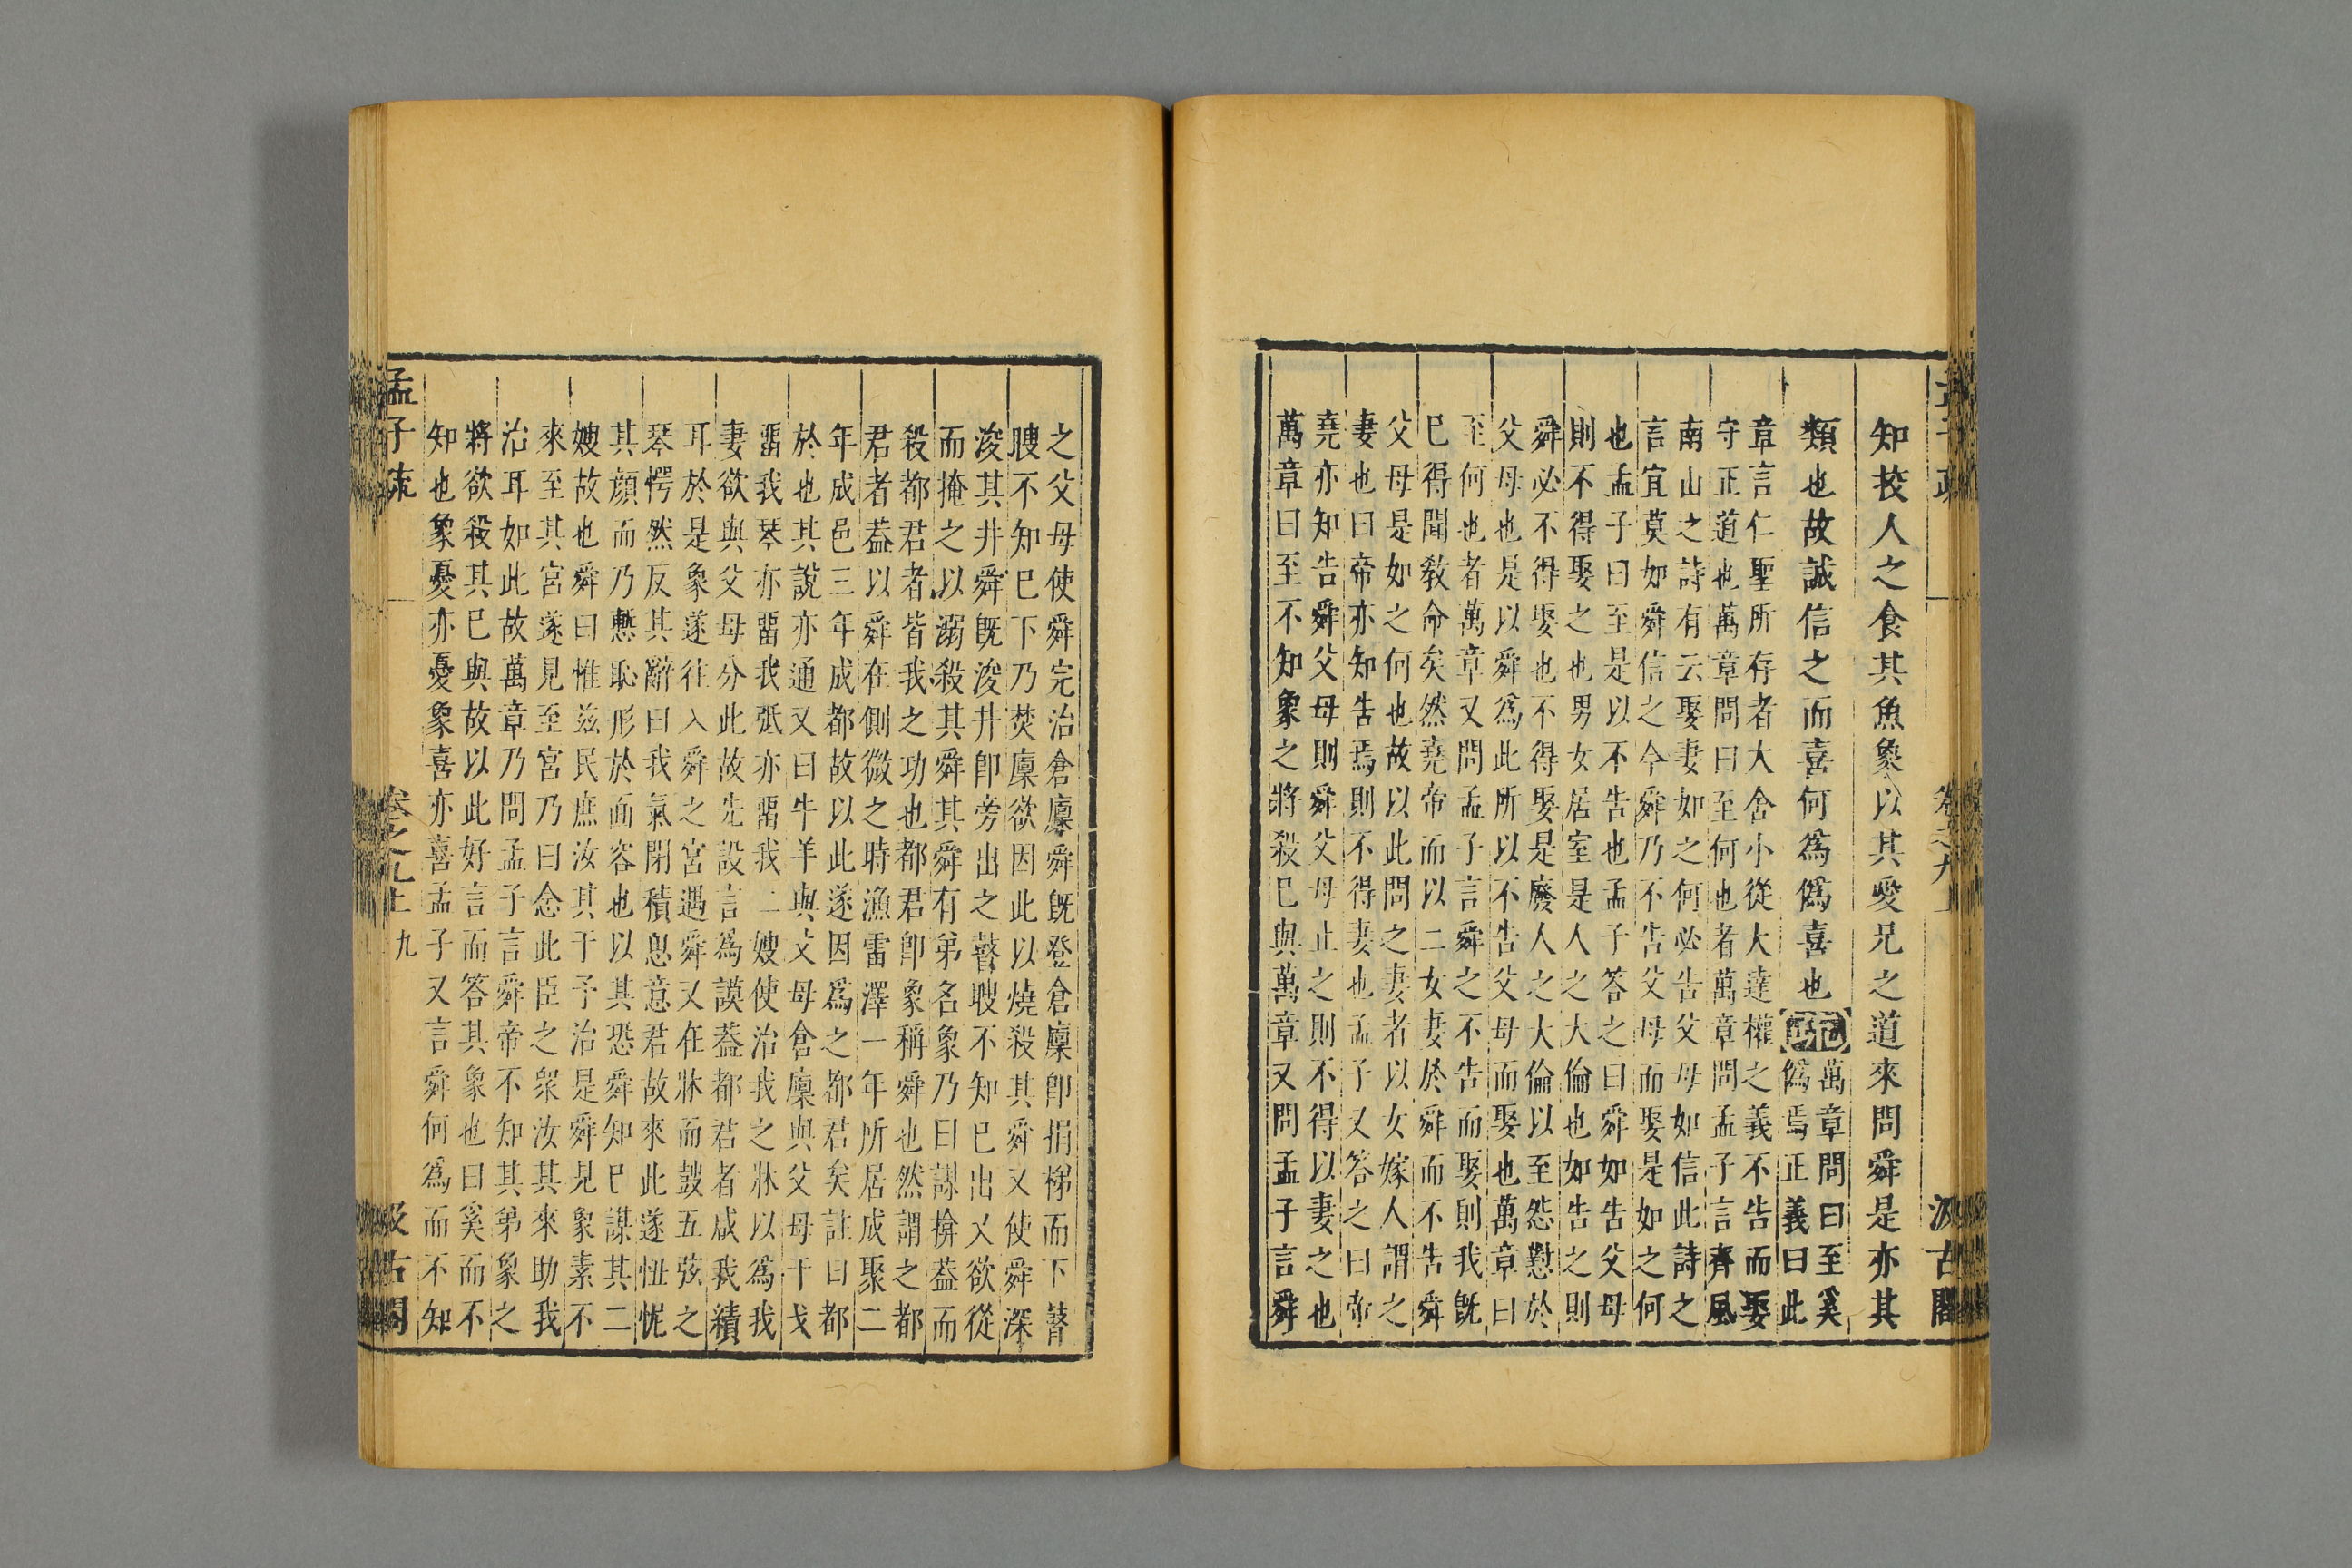 知挍人之食其魚象以其愛兄之道來問舜是亦其
類也故誠信之而喜何爲僞喜也
疏
萬章問曰至奚
僞焉正義曰此
章言仁聖所存者大舍小從大達權之義不告而娶
守正道也萬章問曰至何也者萬章問孟子言齊風
南山之詩有云娶妻如之何必告父母如信此詩之
言宜莫如舜信之今舜乃不告父母而娶是如之何
也孟子曰至是以不告也孟子答之曰舜如告父母
則不得娶之也男女居室是人之大倫也如告之則
舜必不得娶也不得娶是廢人之大倫以至怨懟於
父母也是以舜爲此所以不告父母而娶也萬章曰
至何也者萬章又問孟子言舜之不告而娶則我旣
巳得聞敎命矣然堯帝而以二女妻於舜而不告舜
父母是如之何也故以此問之妻者以女嫁人謂之
妻也曰帝亦知告焉則不得妻也孟子又答之曰帝
堯亦知告舜父母則舜父母止之則不得以妻之也
萬章曰至不知象之將殺巳與萬章又問孟子言舜
古閣
之父母使舜完治倉廩舜旣登倉廩卽捐梯而下瞽
瞍不知巳下乃焚廩欲因此以燒殺其舜又使舜深
浚其井舜旣浚井卽旁出之瞽瞍不知巳出又欲從
而掩之以溺殺其舜其舜有弟名象乃曰謀揜葢而
殺都君者皆我之功也都君卽象稱舜也然謂之都
君者葢以舜在側微之時漁雷澤一年所居成聚二
年成邑三年成都故以此遂因爲之都君矣註曰都
於也其說亦通又曰牛羊與父母倉廩與父母干戈
畱我琴亦畱我弤亦畱我二嫂使治我之牀以爲我
妻欲與父母分此故先設言爲謨葢都君者咸我績
耳於是象遂往入舜之宮遇舜又在牀而鼓五弦之
琴愕然反其辭曰我氣閉積思意君故來此遂忸怩
其顏而乃慙恥形於面容也以其恐舜知巳謀其二
嫂故也舜曰惟茲民庶汝其于予治是舜見象素不
來至其宮遂見至宮乃曰念此臣之衆汝其來助我
治耳如此故萬章乃問孟子言舜帝不知其弟象之
將欲殺其巳與故以此好言而答其象也曰奚而不
知也象憂亦憂象喜亦喜孟子又言舜何爲而不知
孟子疏
卷之九上
九